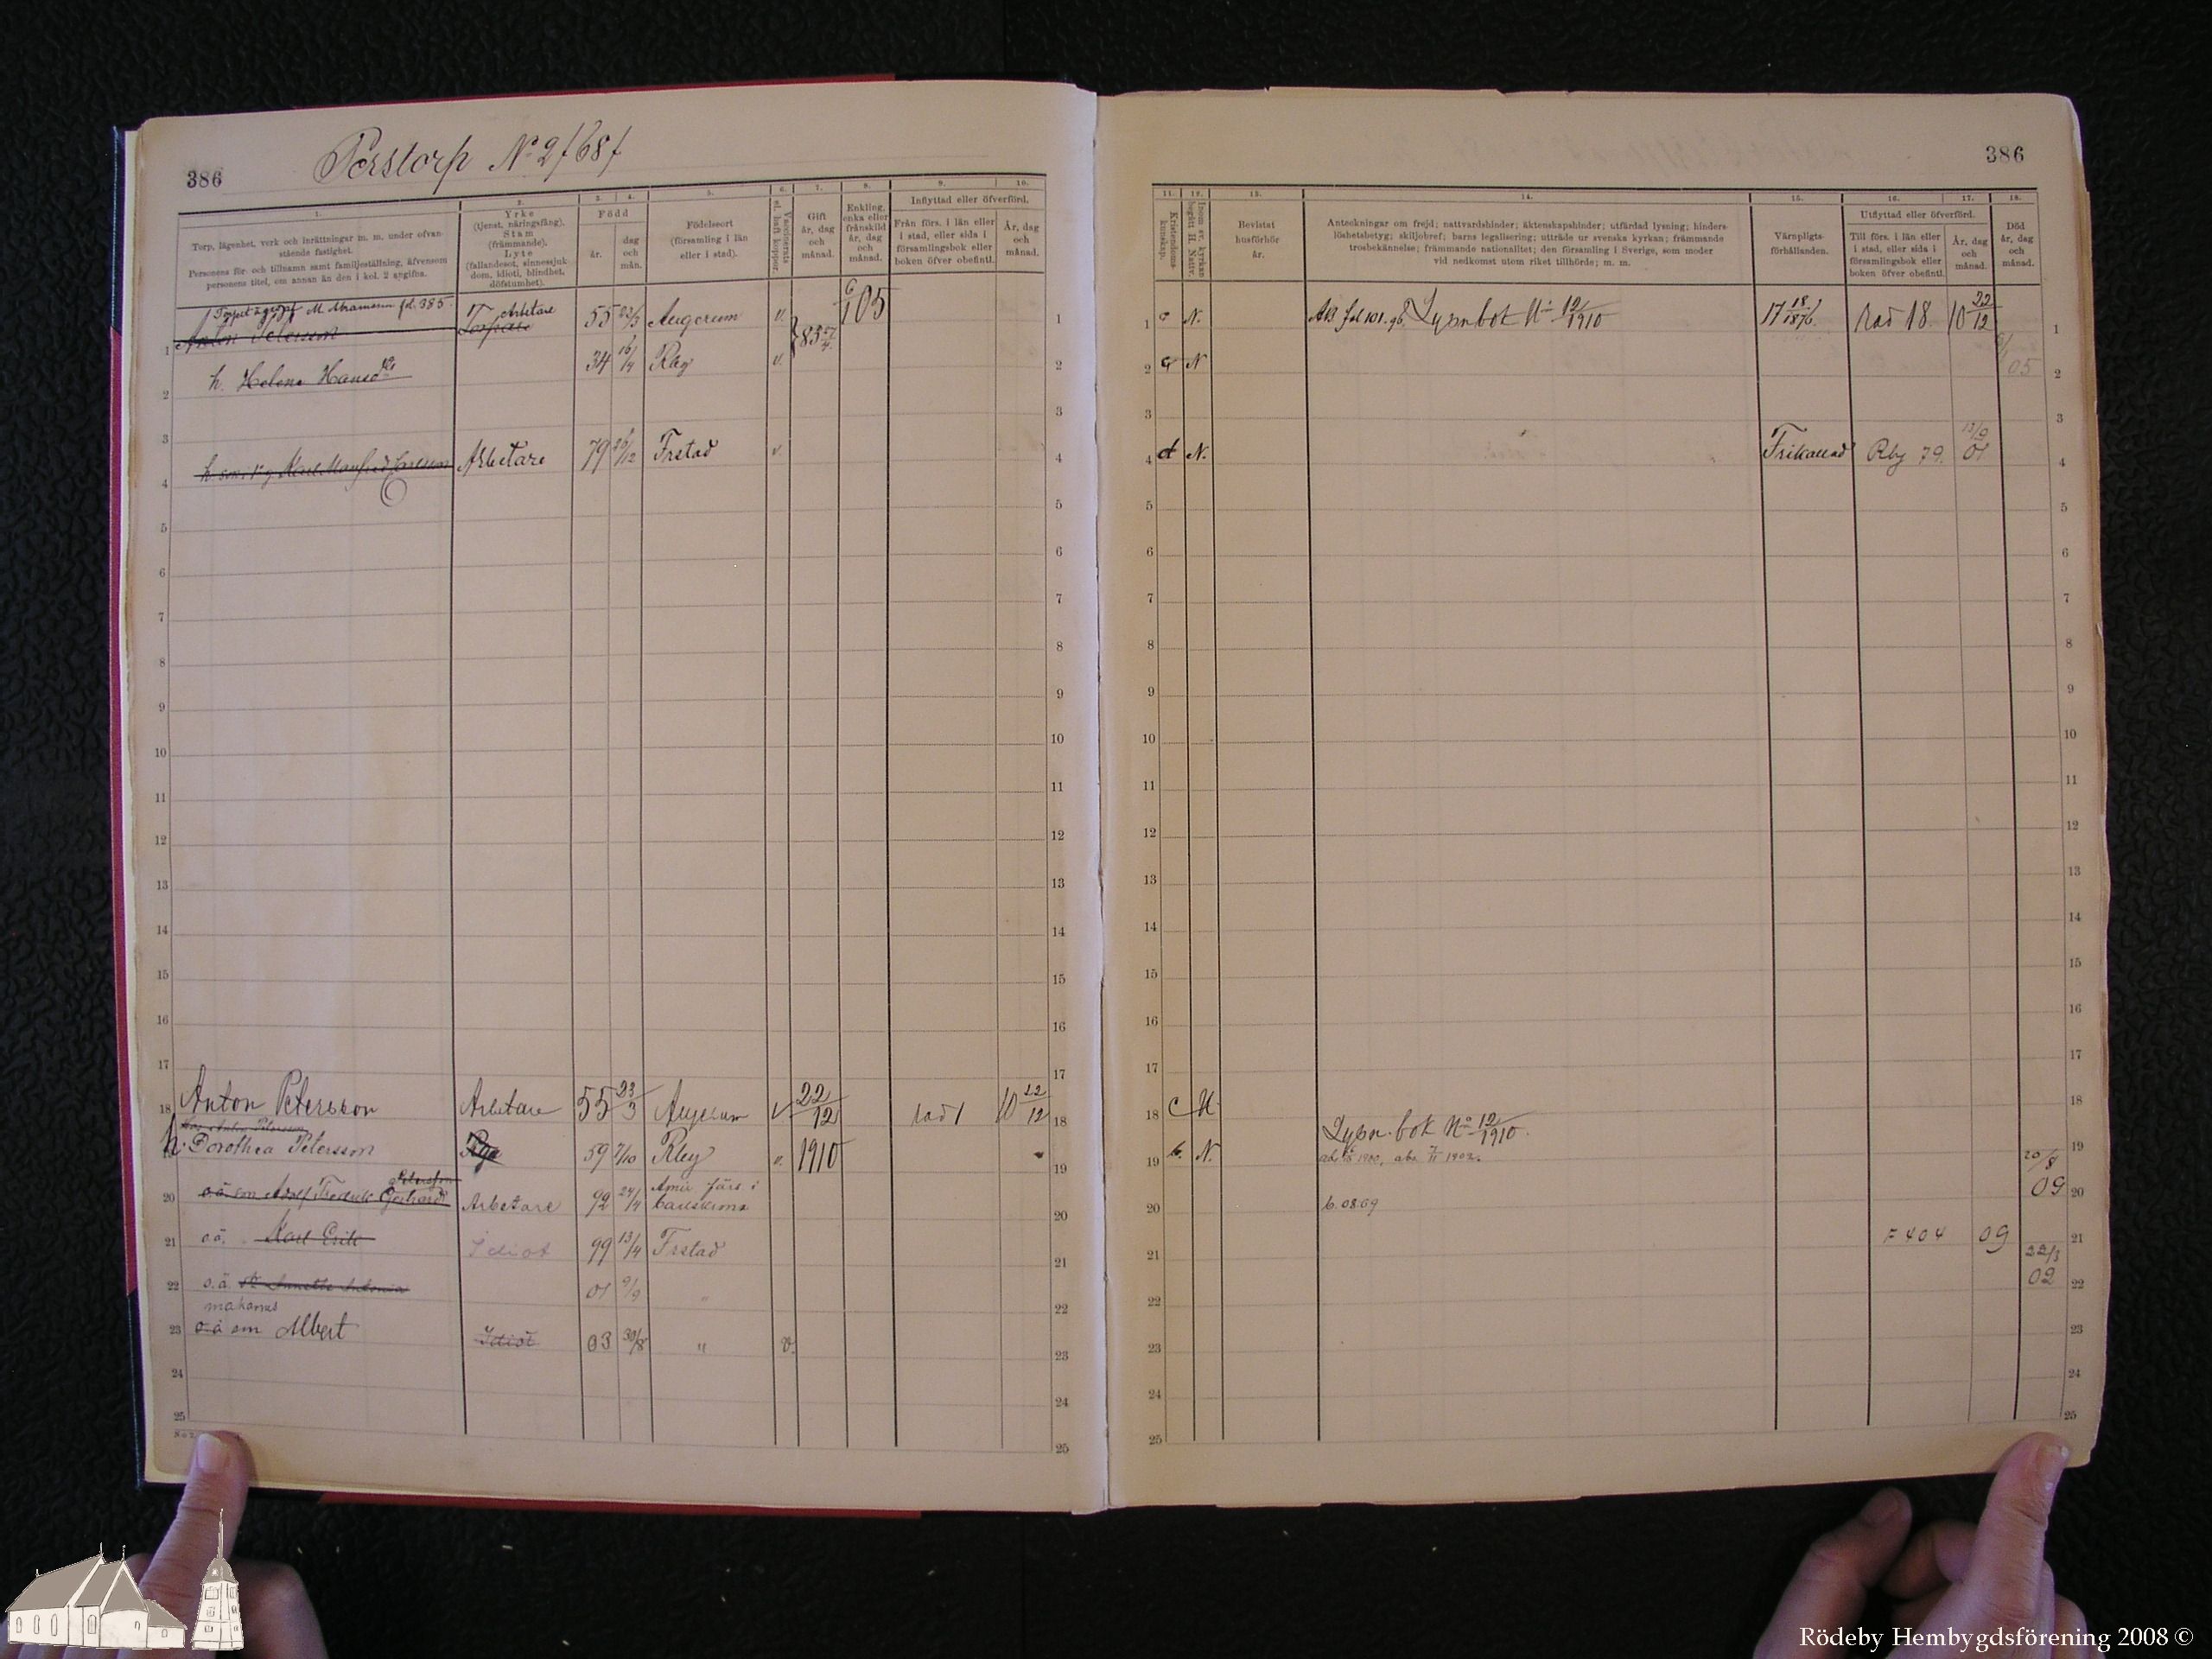 386
Perstorp No 2 f 68 f
1. 2. 3. 4. 5. 6. 7. 8. 9. 10.
Torp, lägenhet, verk och inrättningar m. m. under ofvan-
stående fastighet.
Personens för- och tillnamn samt familjeställning, äfvensom
personens titel, om annan än den i kol. 2 angifna.
Yrke
(tjenst, näringsfång).
Stam
(främmande).
Lyte
(fallandesot, sinnessjuk-
dom, idioti, blindhet,
döfstumhet).
Född
år.
dag
och
mån.
Födelseort
(församling i län
eller i stad).
Vaccinerats
el. haft koppor.
Gift
år, dag
och
månad.
Enkling,
enka eller
frånskild
år, dag
och
månad.
Inflyttad eller öfverförd.
Från förs. i län eller
i stad, eller sida i
församlingsbok eller
boken öfver obefintl.
År, dag
och
månad.
M. Abramsson fol. 385.
1 Anton Petersson Arbetare Torpare 55 23/3 Augerum v. 83 6/1 05 1
2 h. Helena Hansdr 34 16/9 Rby v.
3
3 4 Arbetare 79 Frstad v. 4
4 5
5 6
6 7
7 8
8 9
9 10
10 11
11 12
12 13
13 14
14 15
15 16
16 17
17
18 Anton Petersson Arbetare 55 23/3 Augerum v 22/12 rad 1 10 22/12 18
h. Dorothea Petersson Pga 59 7/10 Rby v. 1910 19
20 o.ä. son Adolf Fredrik Gerhard Petersson Arbetare 92 24/4 Amir förs i Carlskrona 20
21 o.ä. Karl Erik Idiot 99 13/4 Frstad 21
22 o.ä. 01 9/9 " 22
makarnas
23 o.ä. son Albert Idiot 03 30/8 " v. 23
24 24
25 25
386
11. 12. 13. 14. 15. 16. 17. 18.
Kristendoms-
kunskap.
Inom sv. kyrkan
begått H. Nattv.
Bevistat
husförhör
år.
Anteckningar om frejd; nattvardshinder; äktenskapshinder; utfärdad lysning; hinders-
löshetsbetyg; skiljobref; barns legalisering; utträde ur svenska kyrkan; främmande
trosbekännelse; främmande nationalitet; den församling i Sverige, som moder
vid nedkomst utom riket tillhörde; m. m.
Värnpligts-
förhållanden.
Utflyttad eller öfverförd.
Till förs. i län eller
i stad, eller sida i
församlingsbok eller
boken öfver obefintl.
År, dag
och
månad.
Död
år, dag
och
månad.
1 c N. AB fol 101. Lysn bok No 12/1910 17 18/1876 rad 18 10 22/12 1
2 a N 05 2
3 3
4 d N. Frikallad Rby 79. 13/9 01 4
5 5
6 6
7 7
8 8
9 9
10 10
11 11
12 12
13 13
14 14
15 15
16 16
17 17
18 c N. Lysn. bok No 12/1910. 18
19 b. N. 20/8 09 19
20 b. 08.09 20
21 F 404 09 21
22 22/3 02 22
23 23
24 24
25 25
Rödeby Hembygdsförening 2008 ©